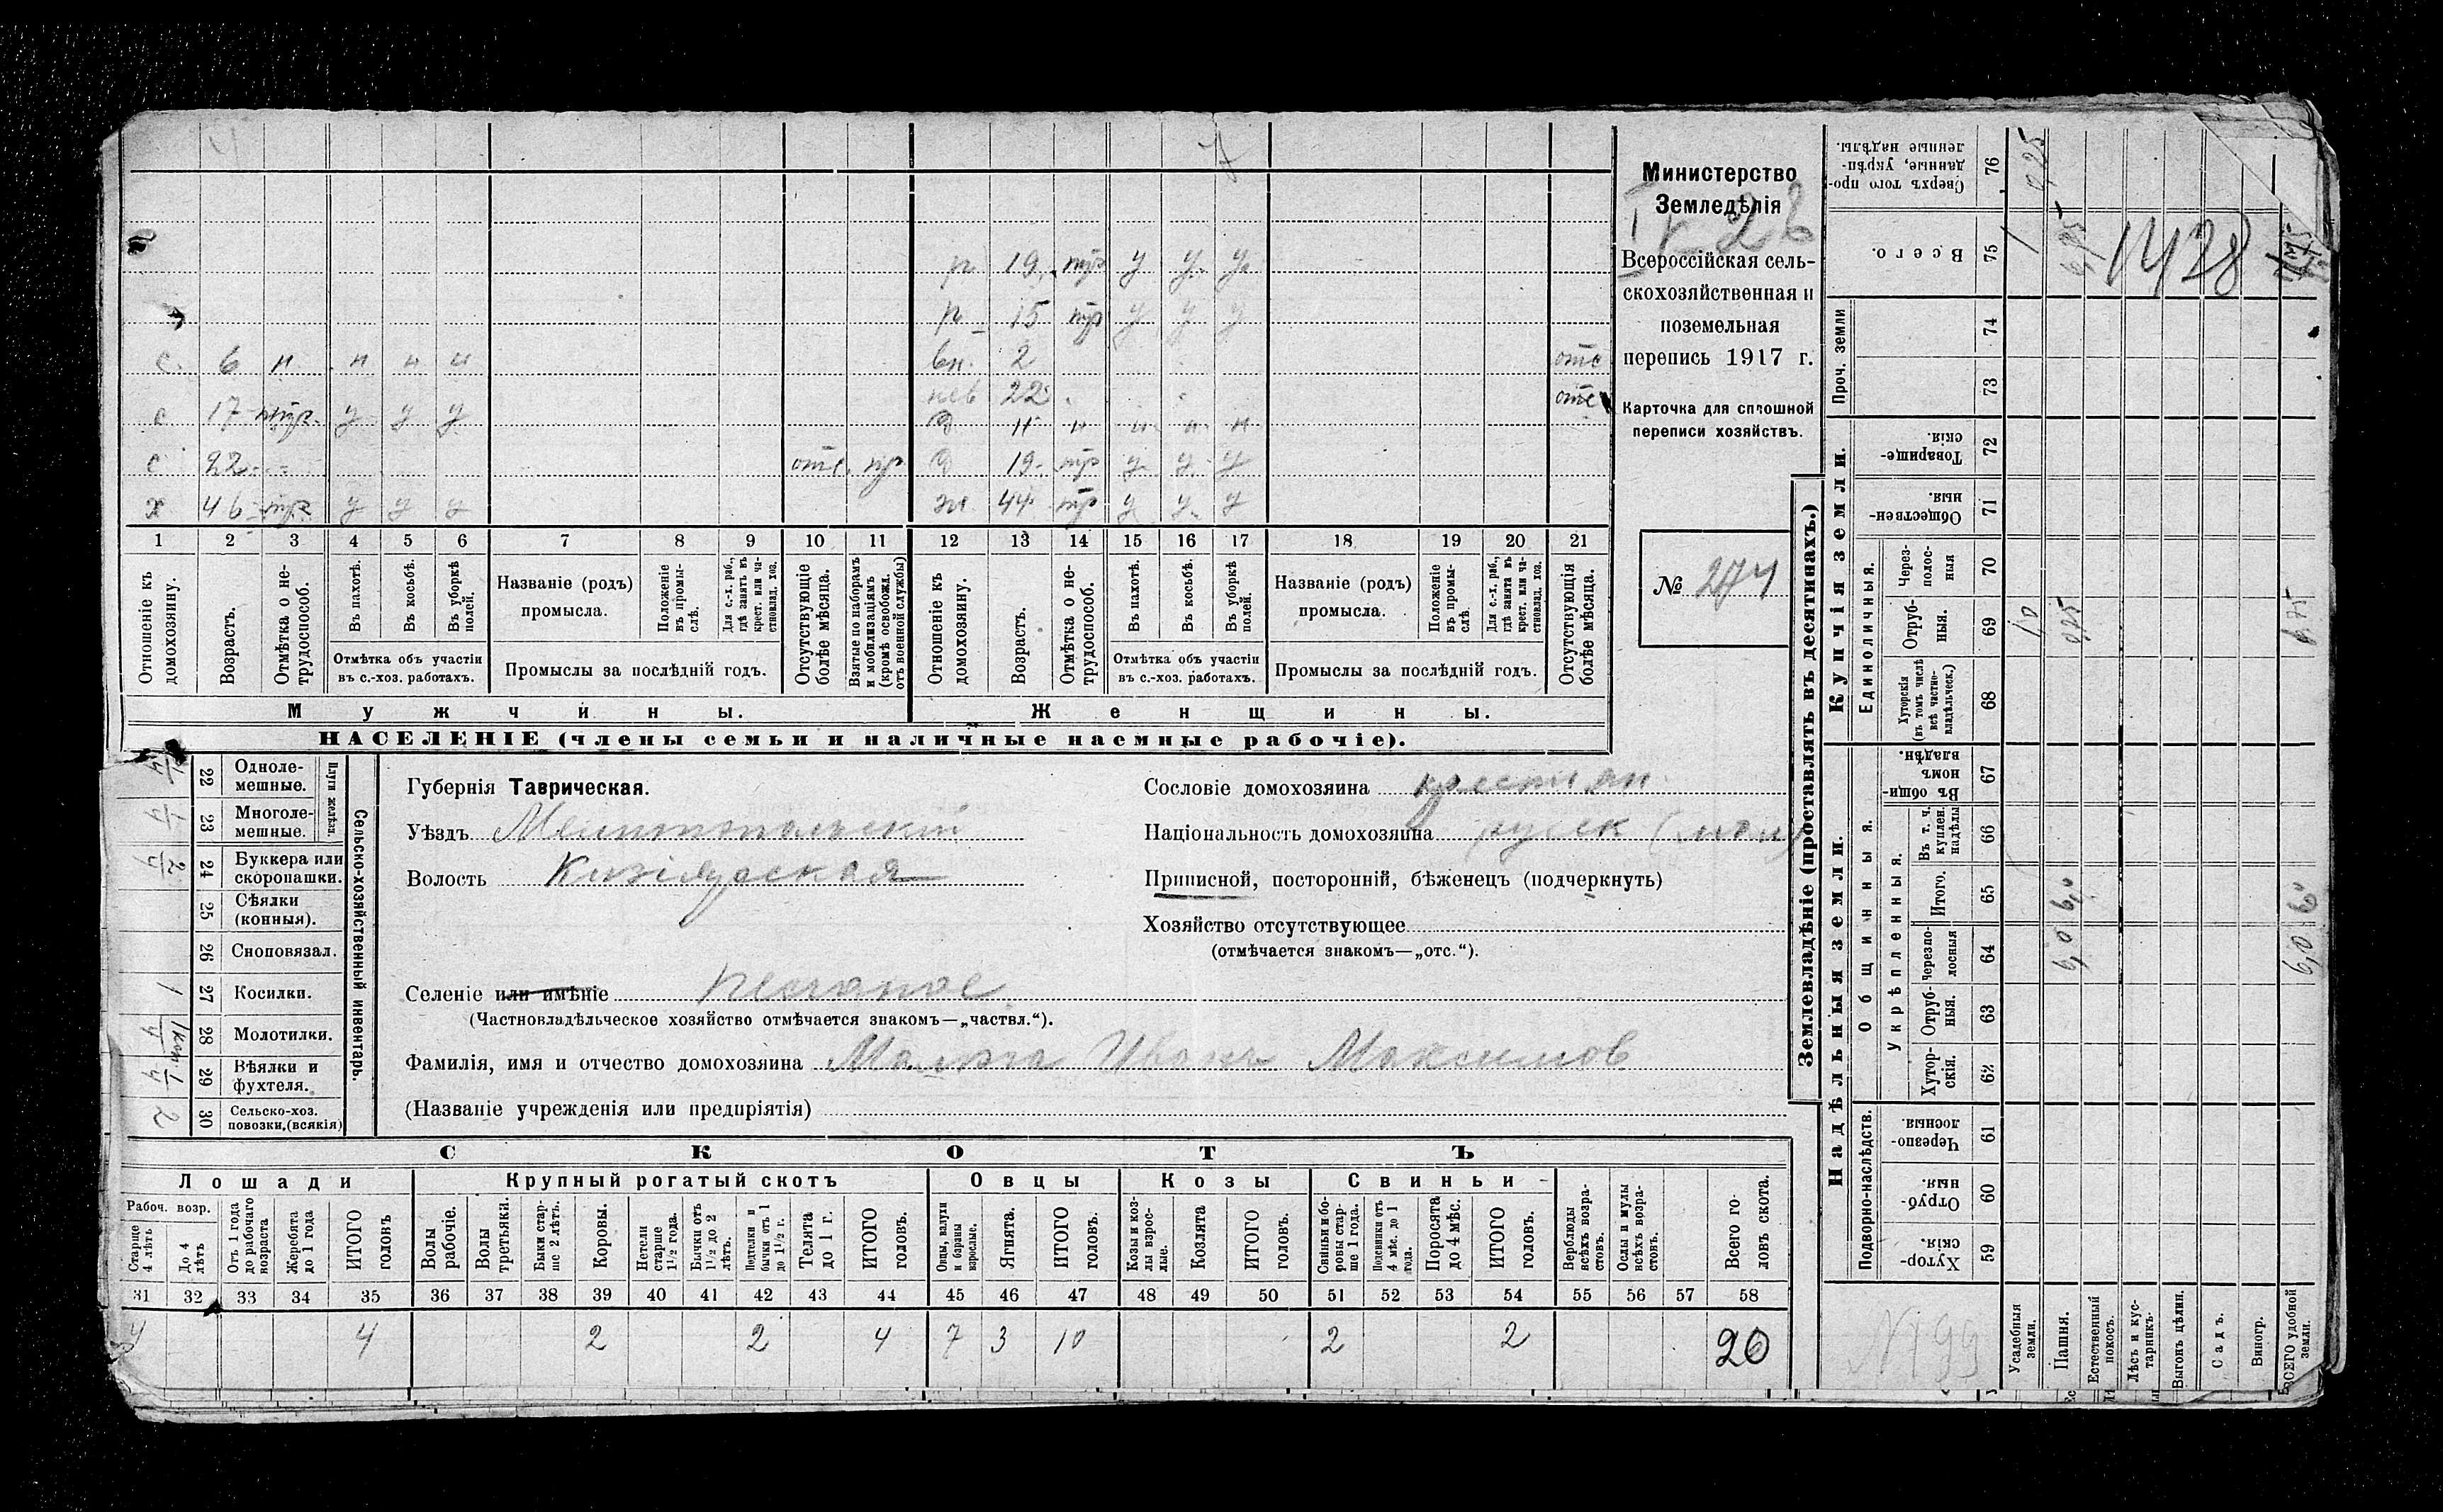 7
р 19 тр у у у
р 15 тр у у у
с 6 н н н н вн. 2 отс
нев 22 отс
с 17 тр. у у у д 11 н н н н
с 22 отс. пр д 19 тр у у у
х 46 тр у у у ж 44 тр у у у
1 2 3 4 5 6 7 8 9 10 11 12 13 14 15 16 17 18 19 20 21
Отношеніе къ домохозяину.
Возрастъ.
Отмѣтка о не-трудоспособ.
Въ пахотѣ.
Въ косьбѣ.
Въ уборкѣ полей.
Отмѣтка объ участіи въ с.-хоз. работахъ.
Названіе (родъ) промысла.
Положеніе въ промы-слѣ.
Для с.-х. раб., гдѣ занятъ въ крест. или ча-стновлад. хоз.
Промыслы за послѣдній годъ.
Отсутствующіе болѣе мѣсяца.
Взятые по наборамъ и мобилизаціямъ (кромѣ освобожд. отъ военной службы)
Отношеніе къ домохозяину.
Возрастъ.
Отмѣтка о не-трудоспособ.
Въ пахотѣ.
Въ косьбѣ.
Въ уборкѣ полей.
Отмѣтка объ участіи въ с.-хоз. работахъ.
Названіе (родъ) промысла.
Положеніе въ промы-слѣ.
Для с.-х. раб., гдѣ занятъ въ крест. или ча-стновлад. хоз.
Промыслы за послѣдній годъ.
Отсутствующія болѣе мѣсяца.
Мужчины. Женщины.
НАСЕЛЕНІЕ (члены семьи и наличные наемные рабочіе).
Министерство
Земледѣлія
Всероссійская сель-
скохозяйственная и
поземельная
перепись 1917 г.
Карточка для сплошной
переписи хозяйствъ.
№ 274
22 Однолемешные.
23 Многолемешные.
Плуги желѣз.
24 Буккера или скоропашки.
25 Сѣялки (конныя).
26 Сноповязал.
27 Косилки. 1
28 Молотилки.
29 Вѣялки и фухтеля.
30 Сельско-хоз. повозки, (всякія) 2
Сельско-хозяйственный инвентарь.
Губернія Таврическая.
Уѣздъ Мелитопольскій
Волость Кизіярская
Селеніе или имѣніе Песчаное
(Частновладѣльческое хозяйство отмѣчается знакомъ—„частвл.“).
Фамилія, имя и отчество домохозяина Иванъ Максимов
(Названіе учрежденія или предпріятія)
Сословіе домохозяина крестьян.
Національность домохозяина русск
Приписной, посторонній, бѣженецъ (подчеркнуть)
Хозяйство отсутствующее
(отмѣчается знакомъ—„отс.“).
СКОТЪ
Лошади Крупный рогатый скотъ Овцы Козы Свиньи
Рабоч. возр.
Старше 4 лѣтъ
До 4 лѣтъ
Отъ 1 года до рабочаго возраста
Жеребята до 1 года
ИТОГО головъ
Волы рабочіе.
Волы третьяки.
Быки стар-ше 2 лѣтъ.
Коровы.
Нетели старше 1½ года.
Бычки отъ 1½ до 2 лѣтъ.
Подтелки и бычки отъ 1 до 1½ г.
Телята до 1 г.
ИТОГО головъ.
Овцы, валухи и бараны взрослые.
Ягнята.
ИТОГО головъ.
Козы и коз-лы взрос-лые.
Козлята
ИТОГО головъ.
Свиньи и бо-ровы стар-ше 1 года.
Подсвинки отъ 4 мѣс. до 1 года.
Поросята до 4 мѣс.
ИТОГО головъ.
Верблюды всѣхъ возра-стовъ.
Ослы и мулы всѣхъ возра-стовъ.
Всего го-ловъ скота.
31 32 33 34 35 36 37 38 39 40 41 42 43 44 45 46 47 48 49 50 51 52 53 54 55 56 57 58
4 4 2 2 4 7 3 10 2 2 20
Землевладѣніе (проставлять въ десятинахъ.)
Надѣльныя земли. Купчія земли.
Подворно-наслѣдств.
Общинныя.
Укрѣпленныя.
Единоличныя.
Проч. земли
Сверхъ того про-данные, укрѣп-ленные надѣлы. 76
Всего. 75
74
73
Товарище-скія. 72
Обществен-ныя. 71
Через-полос-ныя 70
Отруб-ныя. 69
Хуторскія (въ томъ числѣ всѣ частно-владѣльческ.) 68
Въ общин-номъ владѣн. 67
Въ т. ч. куплен. надѣлы 66
Итого. 65
Черезпо-лосныя 64
Отруб-ныя. 63
Хутор-скія. 62
Черезпо-лосныя. 61
Отруб-ныя. 60
Хутор-скія. 59
1428
6,0
6,0
N 199
Усадебныя земли.
Пашня.
Естественный покосъ.
Лѣсъ и кус-тарникъ.
Выгонъ цѣлин.
Садъ.
Виногр.
ВСЕГО удобной земли.